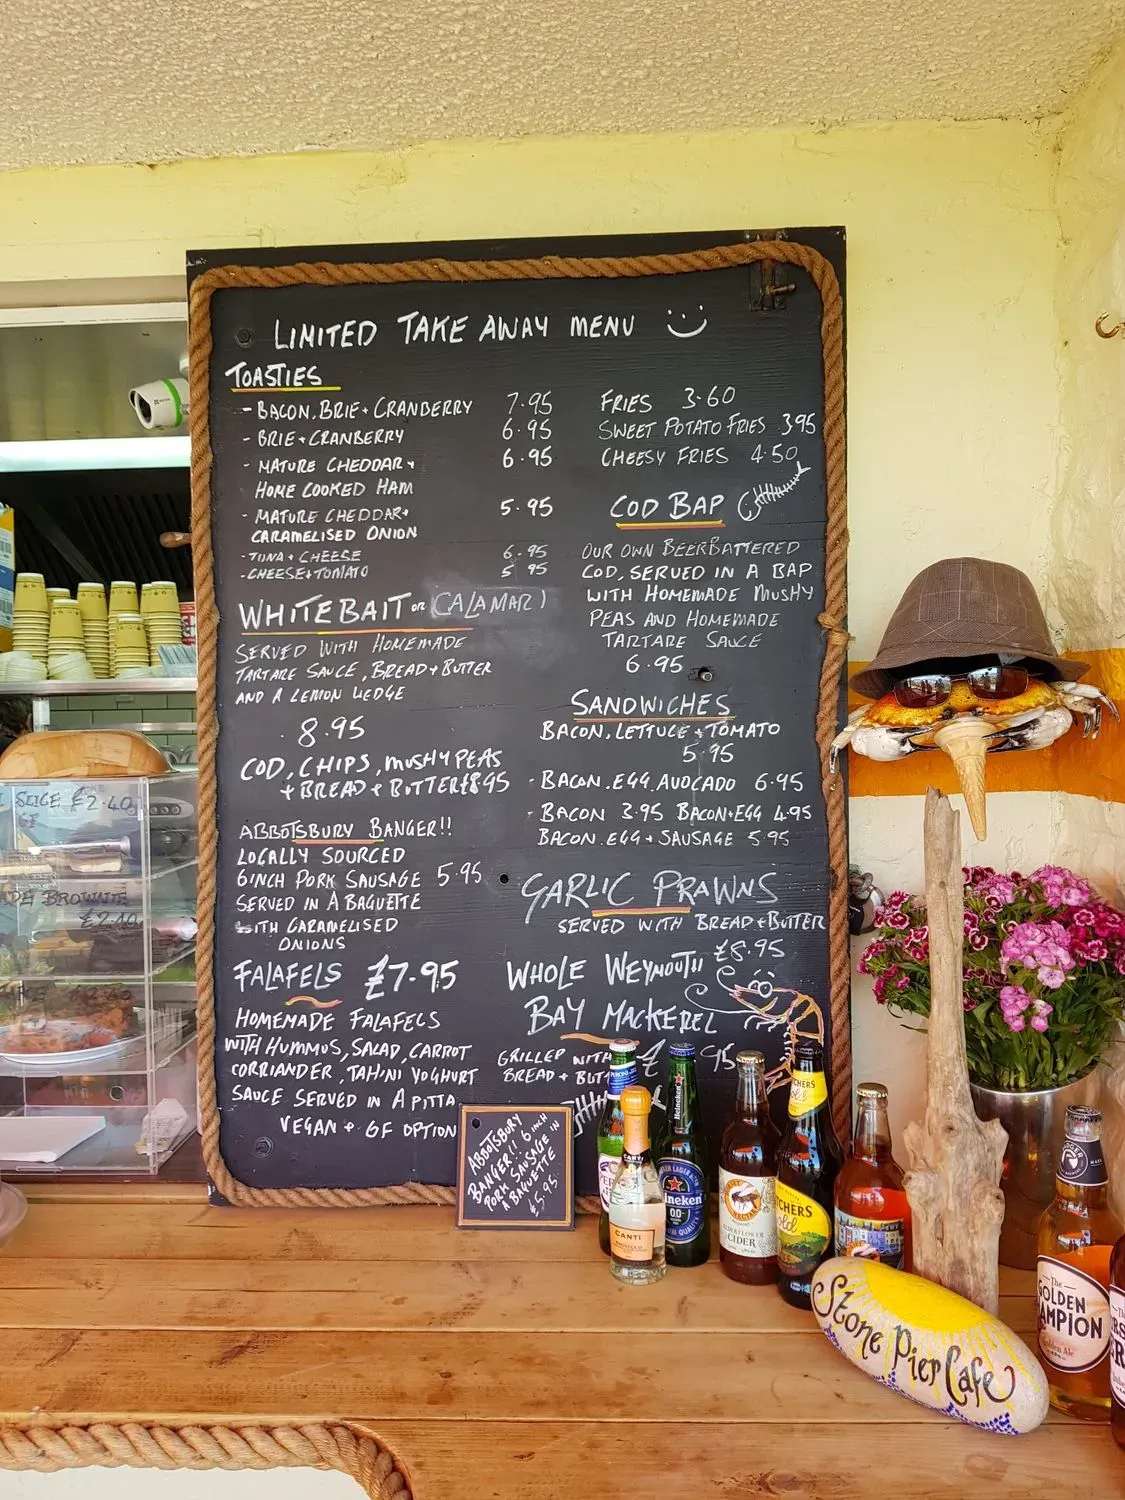 LIMITED TAKE AWAY MENU
TOASTIES
- BACON, BRIE + CRANBERRY 7.95
- BRIE + CRANBERRY 6.95
- MATURE CHEDDAR + 6.95
HOME COOKED HAM
- MATURE CHEDDAR + 5.95
CARAMELISED ONION
- TUNA + CHEESE 6.95
- CHEESE + TOMATO 5.95
WHITEBAIT OR CALAMARI
SERVED WITH HOMEMADE
TARTARE SAUCE, BREAD + BUTTER
AND A LEMON WEDGE
8.95
COD, CHIPS, MUSHY PEAS
+ BREAD + BUTTER £8.95
ABBOTSBURY BANGER!!
LOCALLY SOURCED
6INCH PORK SAUSAGE 5.95
SERVED IN A BAGUETTE
WITH CARAMELISED
ONIONS
FALAFELS £7.95
HOMEMADE FALAFELS
WITH HUMMUS, SALAD, CARROT
CORRIANDER, TAHINI YOGHURT
SAUCE SERVED IN A PITTA
VEGAN + GF OPTION
FRIES 3.60
SWEET POTATO FRIES 3.95
CHEESY FRIES 4.50
COD BAP
OUR OWN BEERBATTERED
COD, SERVED IN A BAP
WITH HOMEMADE MUSHY
PEAS AND HOMEMADE
TARTARE SAUCE
6.95
SANDWICHES
BACON, LETTUCE + TOMATO
5.95
- BACON. EGG. AVOCADO 6.95
- BACON 3.95 BACON + EGG 4.95
BACON. EGG + SAUSAGE 5.95
GARLIC PRAWNS
SERVED WITH BREAD + BUTTER
£8.95
WHOLE WEYMOUTH
BAY MACKEREL
GRILLED WITH £ 95
BREAD + BUT
ABBOTSBURY
BANGER!! 6 INCH
PORK SAUSAGE IN
A BAGUETTE
£5.95
SLICE £2.40
GF
BROWNIE
£2.40
CANTI
PROSECCO
Heineken
0.0
Heineken
CIDER
Gold
Stone Pier Cafe
The
GOLDEN
Golden Ale